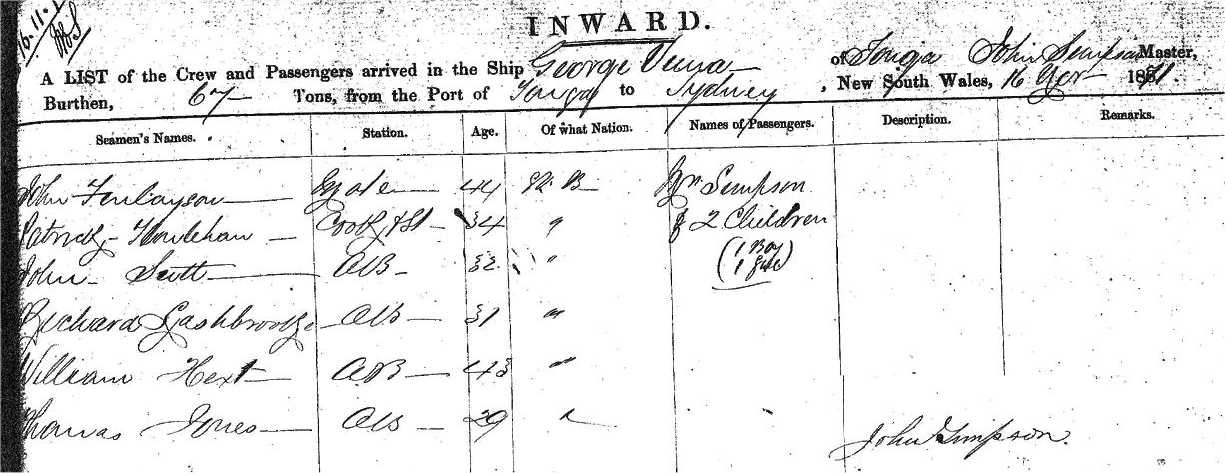 16.11.
INWARD.
A LIST of the Crew and Passengers arrived in the Ship George of Tonga John Simpson Master,
Burthen, 67 Tons, from the Port of Tonga to Sydney, New South Wales, 16 1871.
Seamen's Names. Station. Age. Of what Nation. Names of Passengers. Description. Remarks.
John Finlayson 44 Mrs Simpson
Patrick Cook & St 34 " & 2 Children
John AB 32 " (1 Boy
1 Girl)
Richard AB 31 "
William Hext AB 43 "
Thomas Jones AB 29 "
John Simpson.